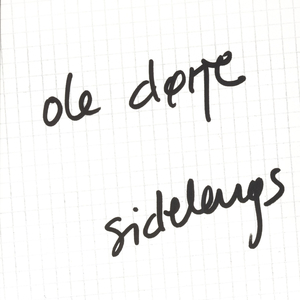 ole dørje
sidelengs